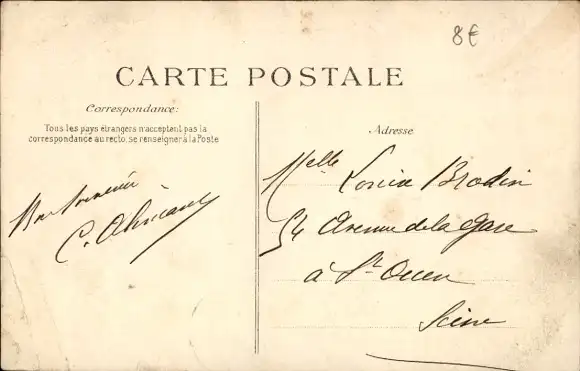 8€
CARTE POSTALE
Correspondance:
Tous les pays étrangers n'acceptent pas la
correspondance au recto, se renseigner à la Poste
Bon Souvenir
C.
Adresse
Melle Louise Brodin
54 Avenue de la Gare
à St Ouen
Seine